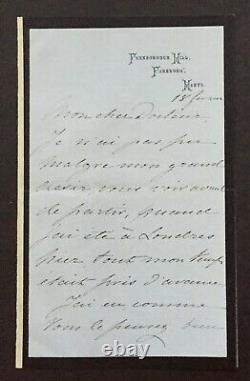 Farnborough Hill,
Farnboro',
Hants.
18 février
Mon cher Docteur,
Je n'ai pas pu
malgré mon grand
désir vous voir avant
de partir, quand
j'ai été à Londres
hier tout mon temps
était pris d'avance
J'ai eu comme
vous le pensez bien